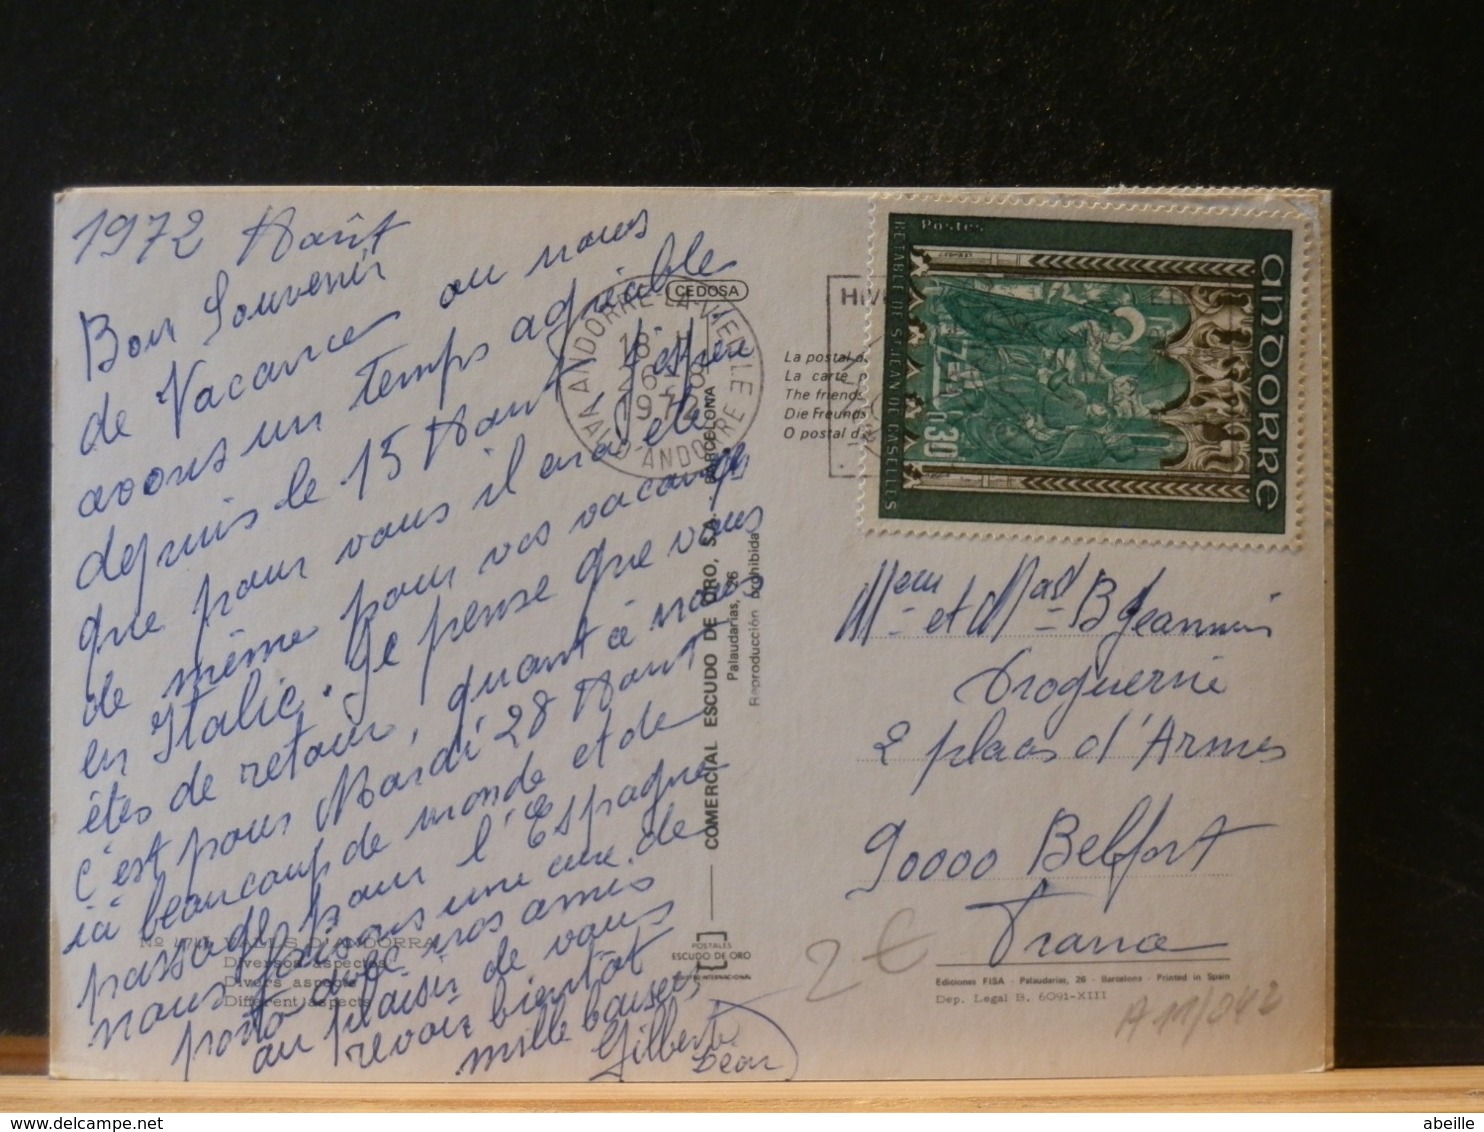 1972 Août
Bon Souvenir
de Vacances ou nous
avons un temps agréable
depuis le 15 Août j'espère
que pour vous il aura été
de même pour vos vacances
en Italie. Je pense que vous
êtes de retour, quant à nous
c'est pour Mardi 28 Août
ici beaucoup de monde et de
passage pour l'Espagne
nous faisons une cure de
porto avec nos amis
au plaisir de vous
revoir bientôt
mille baisers
Gilberte
Dear
No
VALLS D'ANDORRA
Diversos aspectes
Divers aspects
Different aspects
CEDOSA
ANDORRE-LA-VIEILLE
18 H
26-8
1972
VAL D'ANDORRE
COMERCIAL ESCUDO DE ORO, S.A. BARCELONA
Palaudarias, 26
Reproducción prohibida
POSTALES
ESCUDO DE ORO
HIV
ETE
La postal d
La carte
The friend
Die Freund
O postal d
Postes
ANDORRE
RETABLE DE S. JEAN DE CASELLES
0,30
Mem et Mad B Jeannin
Droguerie
2 place d'Armes
90000 Belfort
France
2 €
Ediciones FISA - Palaudarias, 26 - Barcelona - Printed in Spain
Dep. Legal B. 6091-XIII
A11/042
delcampe.net
abeille